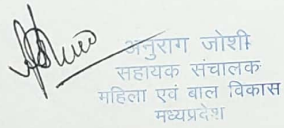 अनुराग जोशी
सहायक संचालक
महिला एवं बाल विकास
मध्यप्रदेश